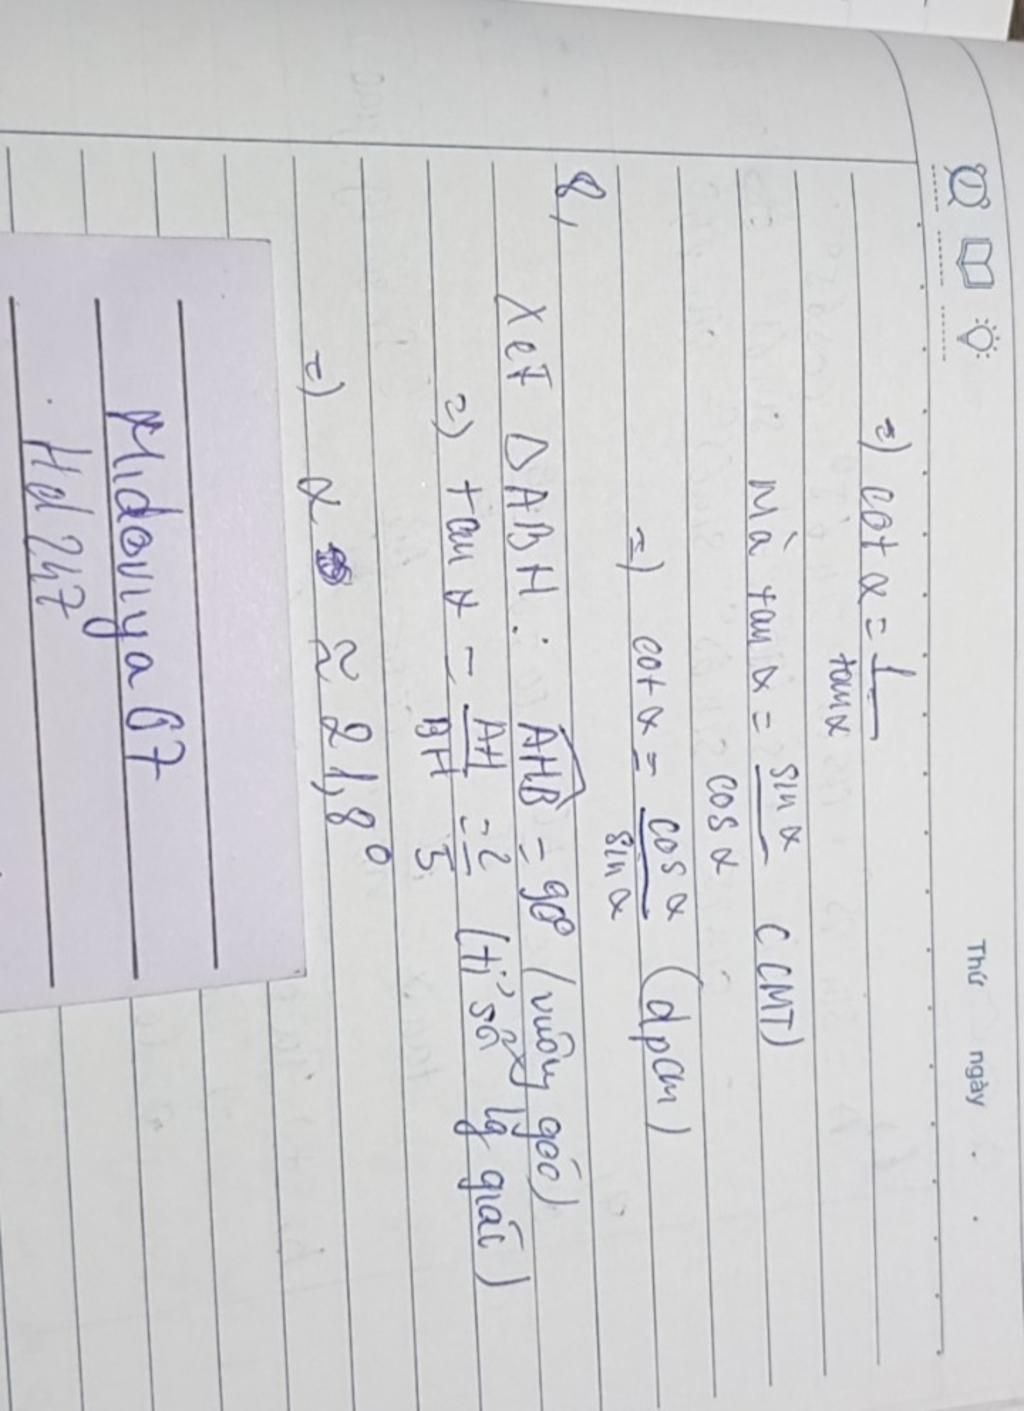 Thứ ngày . .
=) cot α = 1/tan α
Mà tan α = sin α/cos α (CMT)
=) cot α = cos α/sin α (dpcm)
8,
Xét Δ ABH : AHB = 90° (vuông góc)
=) tan α = AH/BH = 2/5 (tỉ số lg giác)
=) α ≈ 21,8°
Midoriya 67
Hd 247